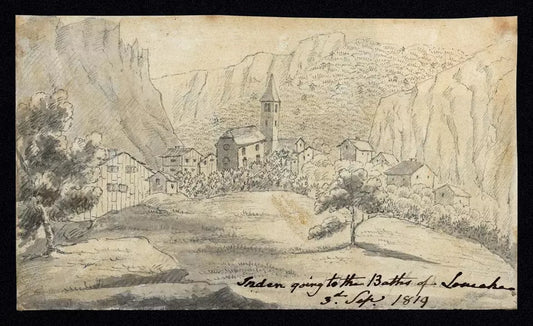 Inden going to the Baths of Loueche
3d. Sep. 1819